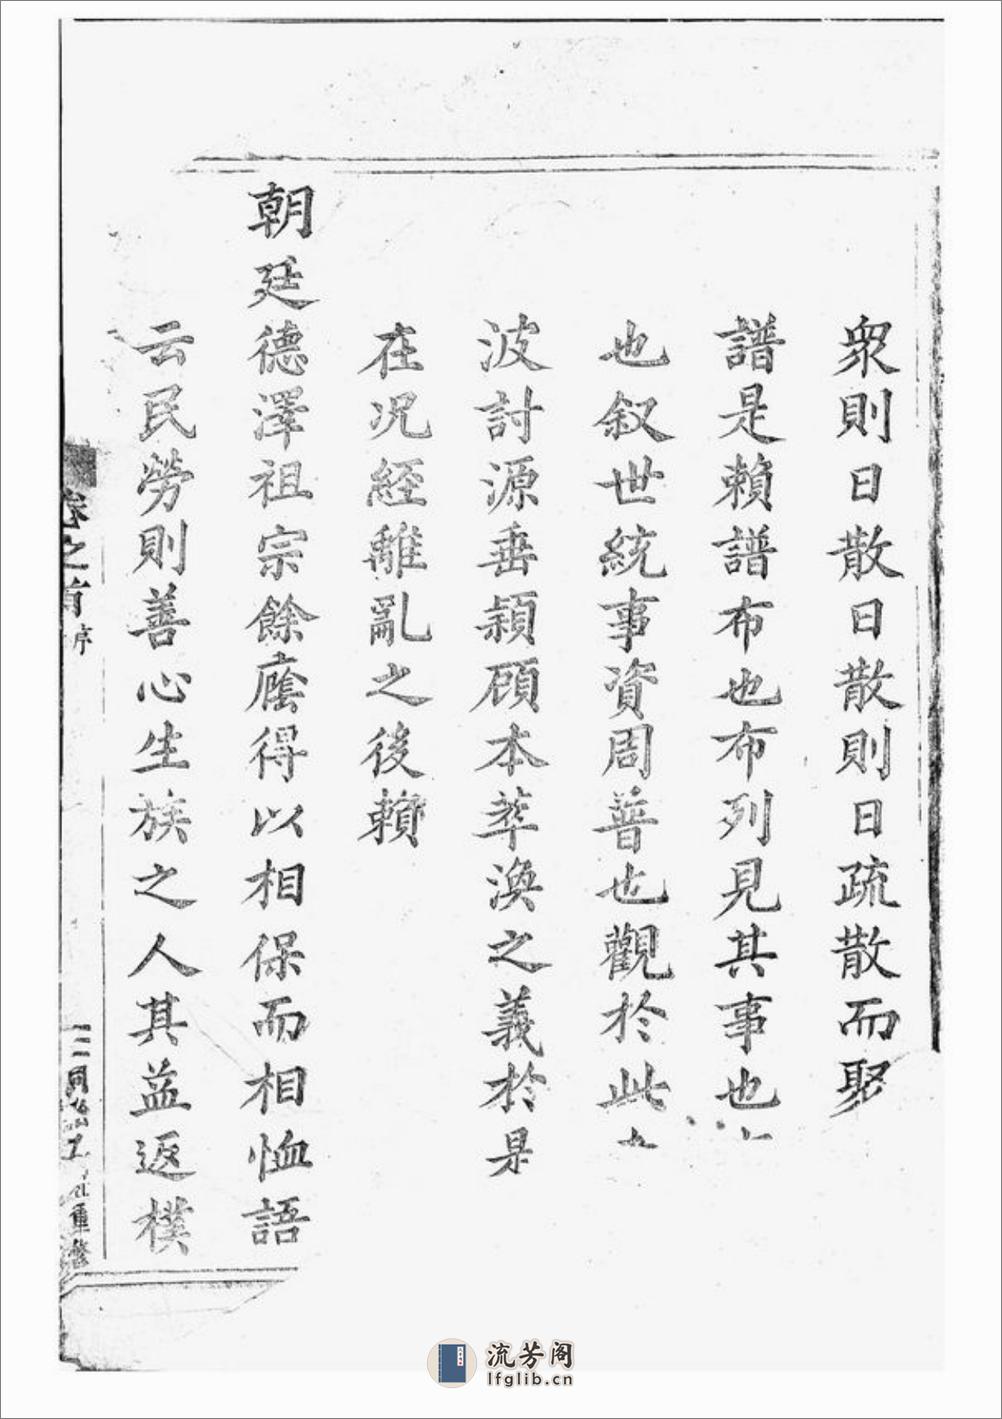 衆則日散日散則日疏散而聚
譜是賴譜布也布列見其事也
也叙世統事資周普也觀於此
波討源垂穎顧本萃渙之義於是
在况經離亂之後賴
朝廷德澤祖宗餘廕得以相保而相恤語
云民勞則善心生族之人其益返樸
卷之首 序
重修
流芳阁
lfglib.cn